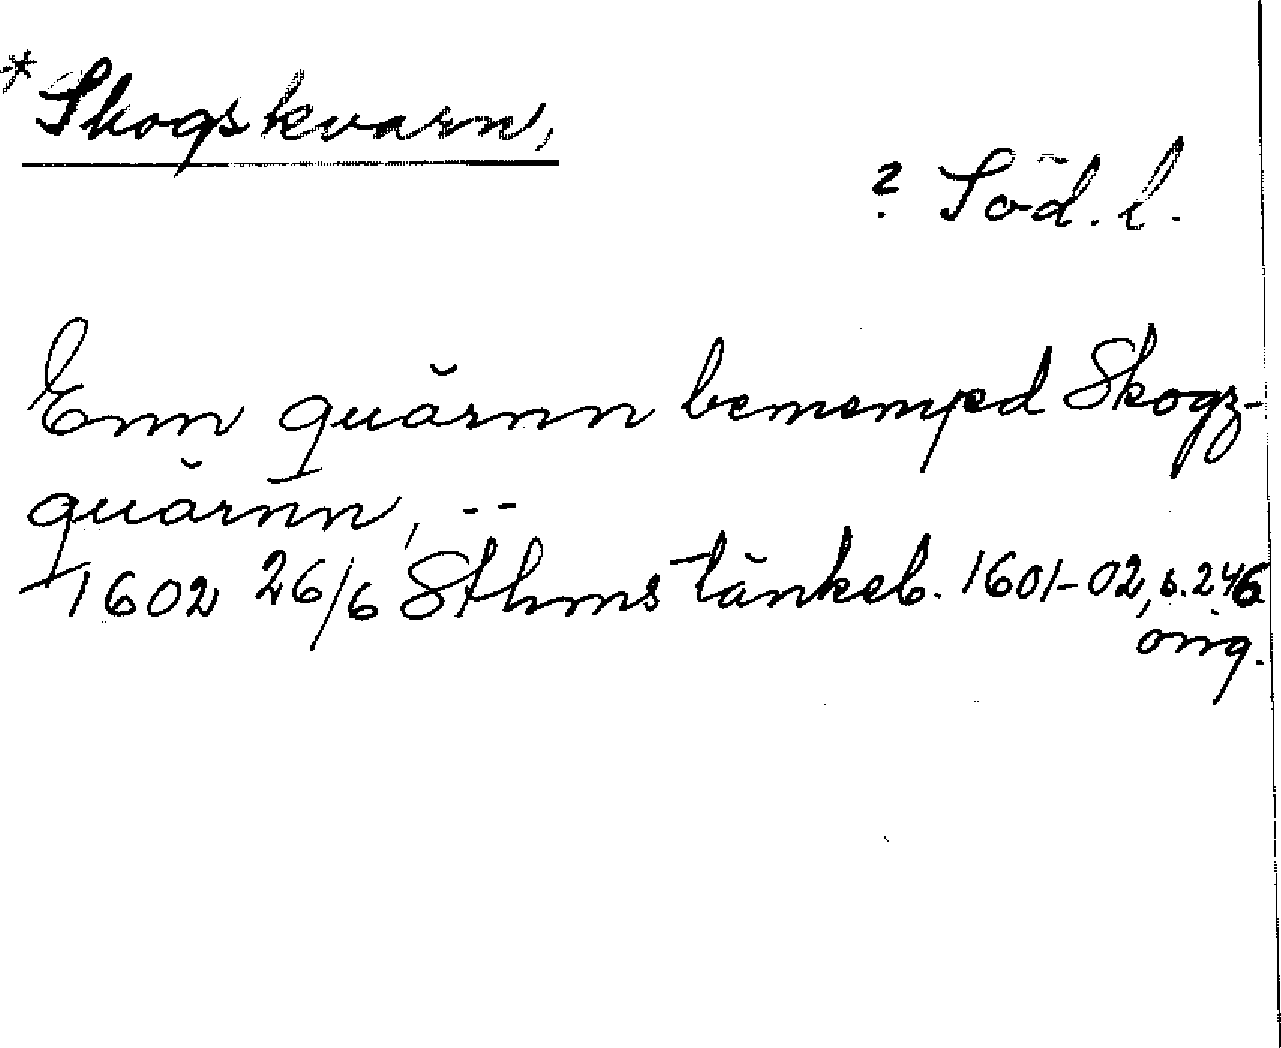 *Skogskvarn,
? Söd. l.
Enn quärnn bemempd Skogz-
quärnn, --
1602 26/6 Sthms tänkeb. 1601-02, s. 246
orig.